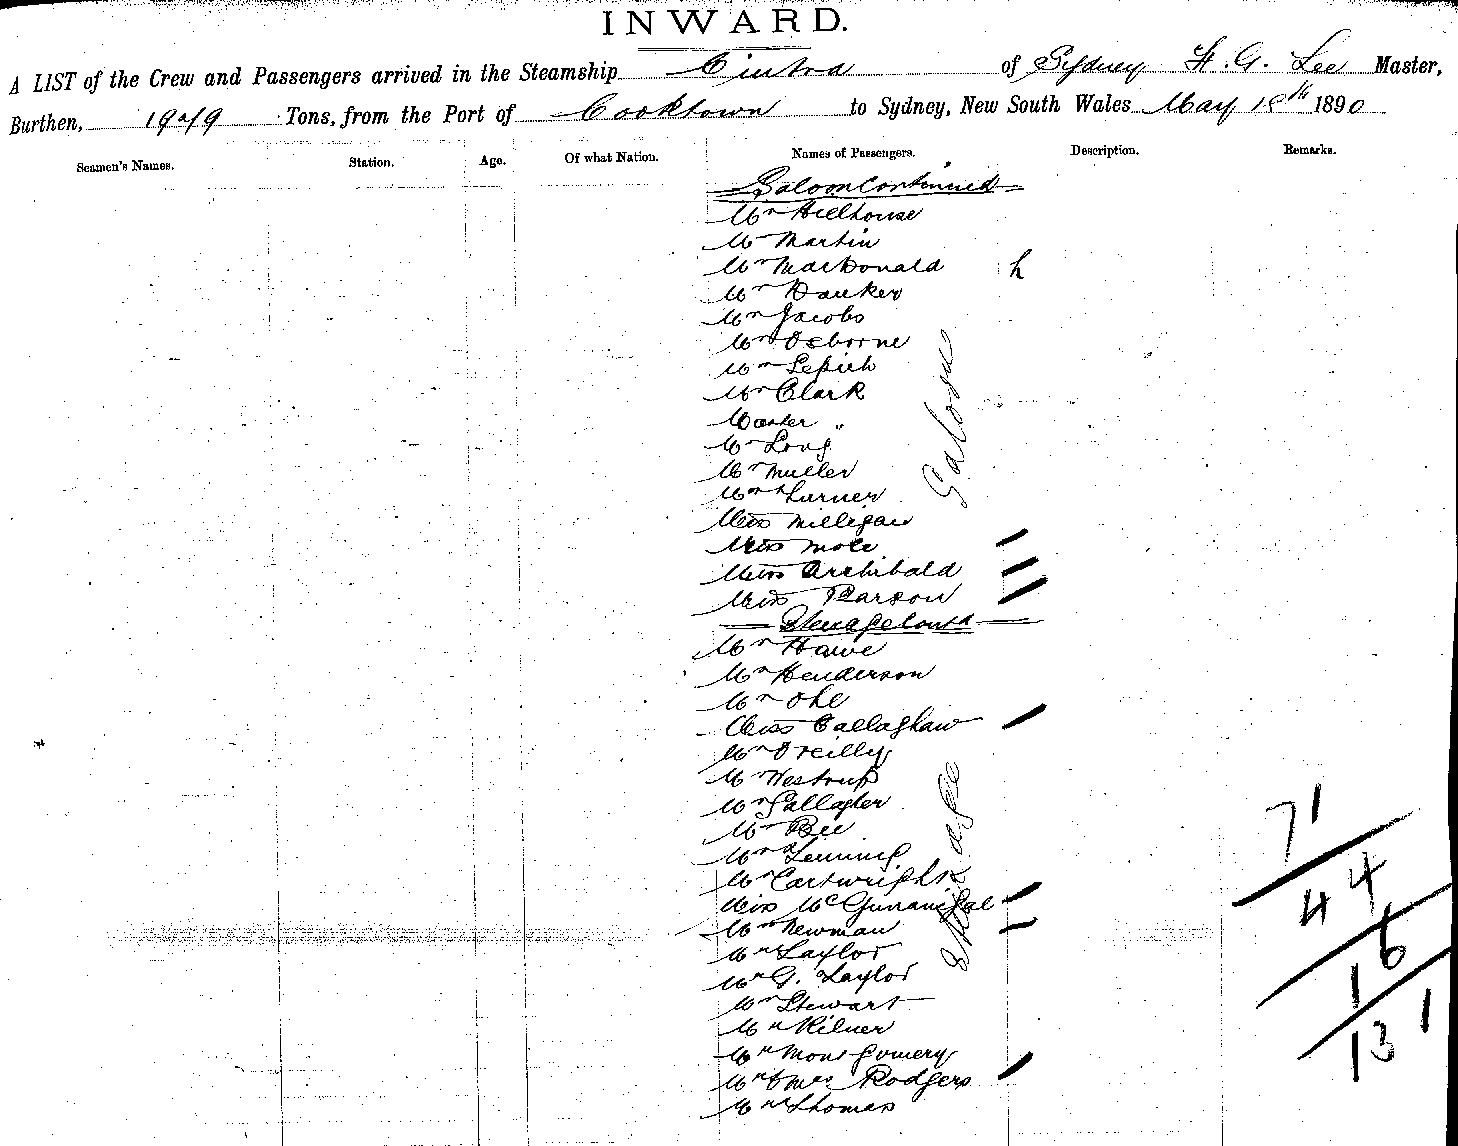 INWARD.
A LIST of the Crew and Passengers arrived in the Steamship Cintra of Sydney H. G. Lee Master,
Burthen, 1979 Tons, from the Port of Cooktown to Sydney, New South Wales May 18th 1890
Seamen's Names. Station. Age. Of what Nation. Names of Passengers. Description. Remarks.
Saloon Continued
Mr Hillhouse
Mr Martin
Mr MacDonald h
Mr
Mr Jacobs
Mr Osborne
Mr
Mr Clark
Master "
Mr Long
Mr Muller
Mr Turner
Miss Milligan
Miss
Miss Archibald
Miss Parson
Saloon
Steerage Contd
Mr Hawe
Mr Henderson
Mr Ohl
Miss Callaghan
Mr O'Reilly
Mr Westrup
Mr Gallagher
Mr
Mr
Mr Cartwright
Miss Mc
Mr Newman
Mr Taylor
Mr G. Taylor
Mr Stewart
Mr Kilner
Mr Montgomery
Mr & Mrs Rodgers
Mr Thomas
Steerage
71
44
16
131